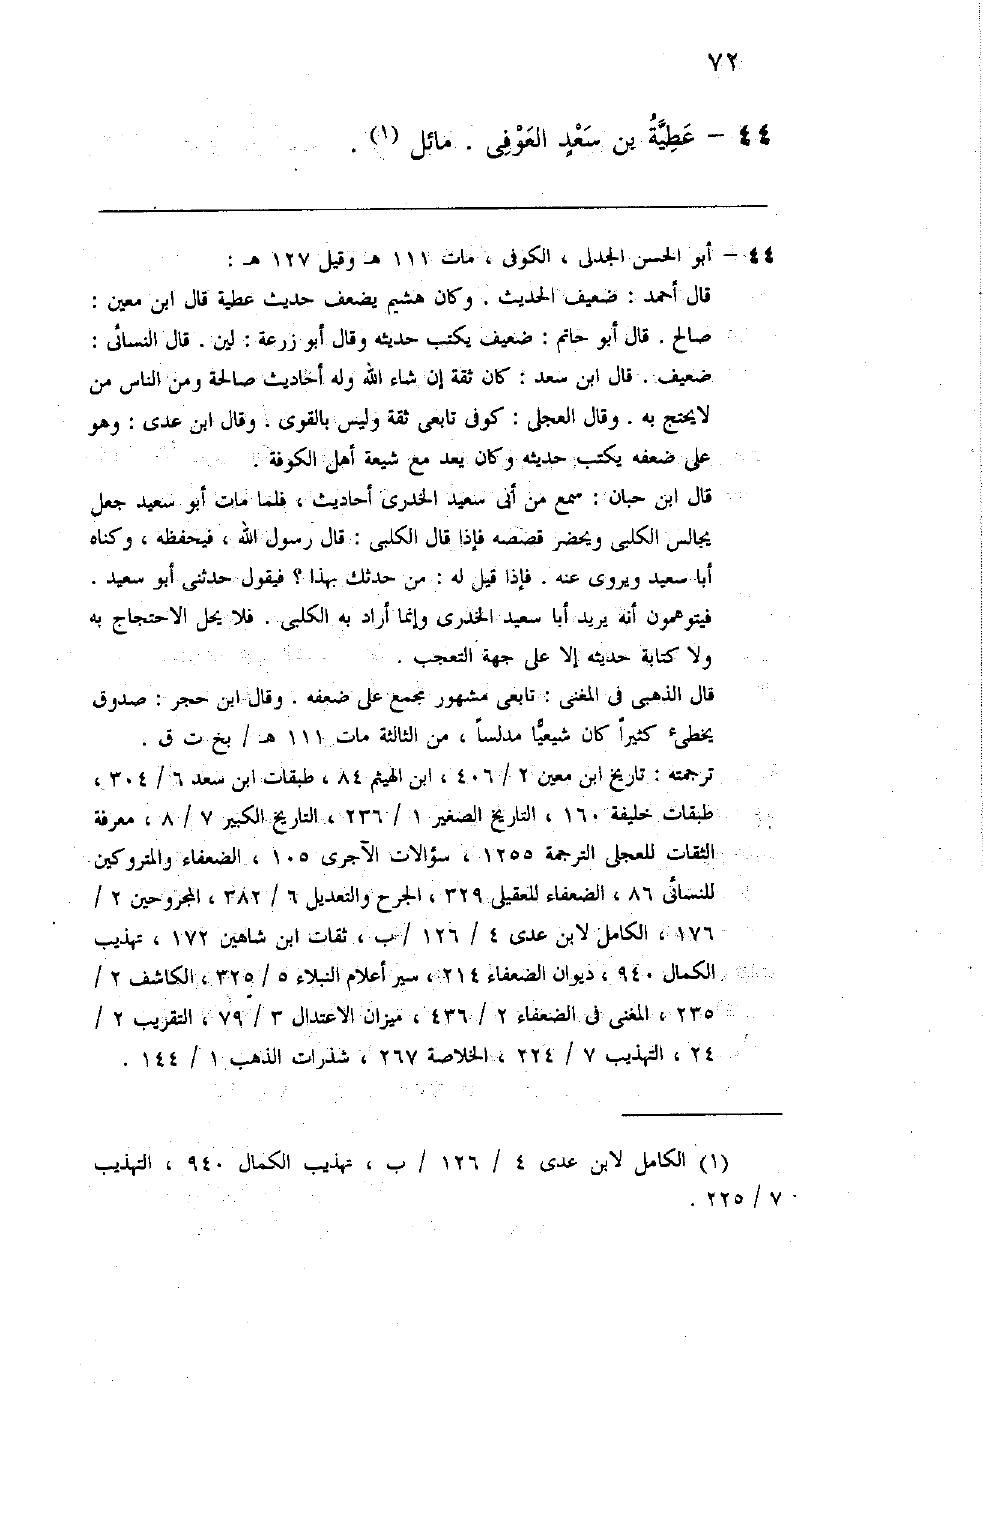 ٧٢
٤٤ – عَطِيَّةُ بن سَعْدٍ العَوْفِى . مائل (١) .
٤٤ – أبو الحسن الجدلى ، الكوفى ، مات ١١١ هـ وقيل ١٢٧ هـ :
قال أحمد : ضعيف الحديث . وكان هشيم يضعف حديث عطية قال ابن معين :
صالح . قال أبو حاتم : ضعيف يكتب حديثه وقال أبو زرعة : لين . قال النسائى :
ضعيف . قال ابن سعد : كان ثقة إن شاء الله وله أحاديث صالحة ومن الناس من
لايحتج به . وقال العجلى : كوفى تابعى ثقة وليس بالقوى . وقال ابن عدى : وهو
على ضعفه يكتب حديثه وكان يعد مع شيعة أهل الكوفة .
قال ابن حبان : سمع من أبى سعيد الخدرى أحاديث ، فلما مات أبو سعيد جعل
يجالس الكلبى ويحضر قصصه فإذا قال الكلبى : قال رسول الله ، فيحفظه ، وكناه
أبا سعيد ويروى عنه . فإذا قيل له : من حدثك بهذا ؟ فيقول حدثنى أبو سعيد .
فيتوهمون أنه يريد أبا سعيد الخدرى وإنما أراد به الكلبى . فلا يحل الاحتجاج به
ولا كتابة حديثه إلا على جهة التعجب .
قال الذهبى فى المغنى : تابعى مشهور مجمع على ضعفه . وقال ابن حجر : صدوق
يخطىء كثيراً كان شيعيًّا مدلساً ، من الثالثة مات ١١١ هـ / بخ ت ق .
ترجمته : تاريخ ابن معين ٢ / ٤٠٦ ، ابن الهيثم ٨٤ ، طبقات ابن سعد ٦ / ٣٠٤ ،
طبقات خليفة ١٦٠ ، التاريخ الصغير ١ / ٢٣٦ ، التاريخ الكبير ٧ / ٨ ، معرفة
الثقات للعجلى الترجمة ١٢٥٥ ، سؤالات الآجرى ١٠٥ ، الضعفاء والمتروكين
للنسائى ٨٦ ، الضعفاء للعقيلى ٣٢٩ ، الجرح والتعديل ٦ / ٣٨٢ ، المجروحين ٢ /
١٧٦ ، الكامل لابن عدى ٤ / ١٢٦ / ب ، ثقات ابن شاهين ١٧٢ ، تهذيب
الكمال ٩٤٠ ، ديوان الضعفاء ٢١٤ ، سير أعلام النبلاء ٥ / ٣٢٥ ، الكاشف ٢ /
٢٣٥ ، المغنى فى الضعفاء ٢ / ٤٣٦ ، ميزان الاعتدال ٣ / ٧٩ ، التقريب ٢ /
٢٤ ، التهذيب ٧ / ٢٢٤ ، الخلاصة ٢٦٧ ، شذرات الذهب ١ / ١٤٤ .
(١) الكامل لابن عدى ٤ / ١٢٦ / ب ، تهذيب الكمال ٩٤٠ ، التهذيب
٧ / ٢٢٥ .